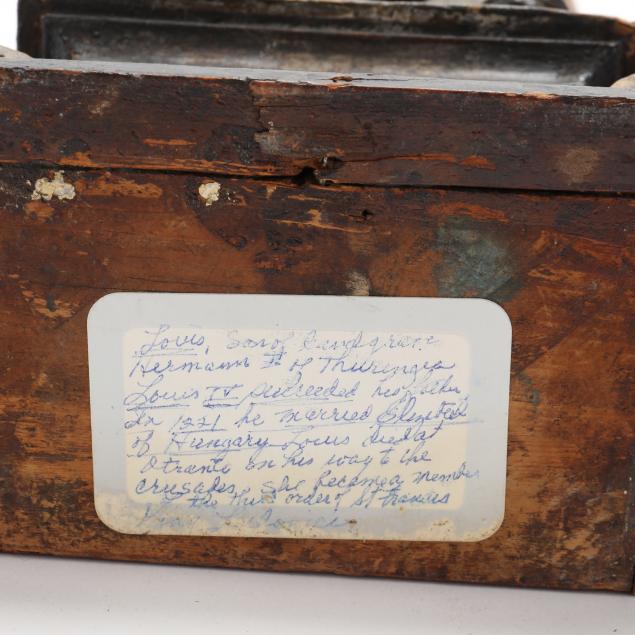 Louis, Son of Landgrave
Hermann I of Thuringia
Louis IV succeeded his father
In 1221 he married Elizabeth
of Hungary Louis died at
Otranto on his way to the
crusades. She became a member
of the third order of St Francis